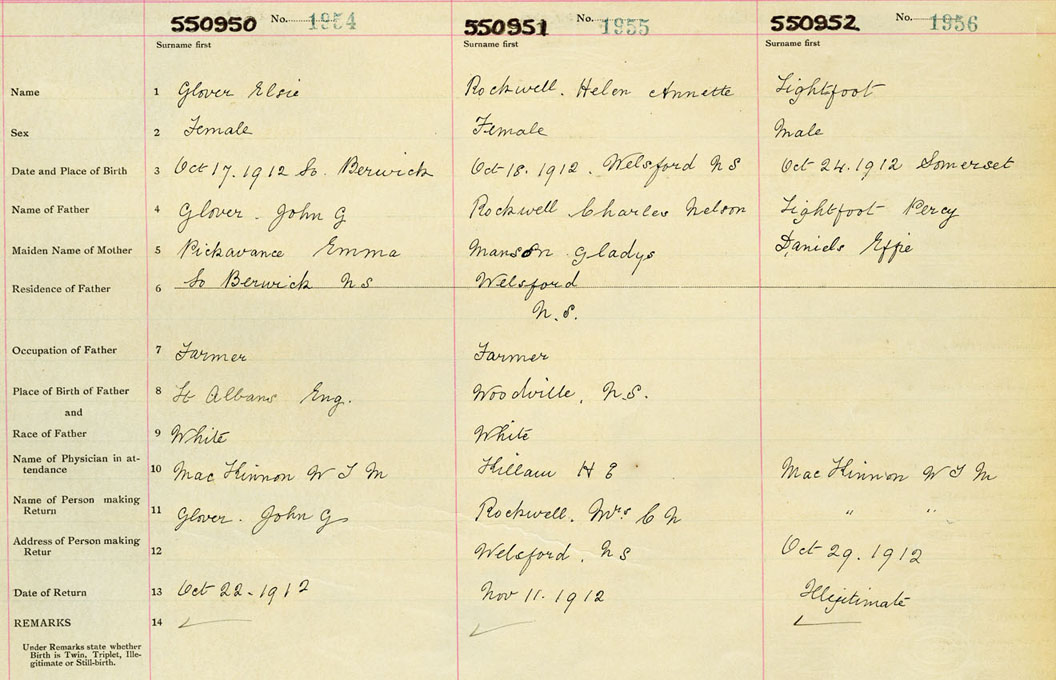 550950 No. 1954 550951 No. 1955 550952 No. 1956
Surname first Surname first Surname first
Name 1 Glover Elsie Rockwell. Helen Annette Lightfoot
Sex 2 Female Female Male
Date and Place of Birth 3 Oct 17. 1912 So. Berwick Oct 18. 1912. Welsford N S Oct 24. 1912 Somerset
Name of Father 4 Glover. John G Rockwell Charles Nelson Lightfoot Percy
Maiden Name of Mother 5 Pickavance Emma Manson Gladys Daniels Effie
Residence of Father 6 So Berwick N S Welsford
N. S.
Occupation of Father 7 Farmer Farmer
Place of Birth of Father 8 St Albans Eng. Woodville, N. S.
and
Race of Father 9 White White
Name of Physician in at-
tendance 10 Mac Kinnon W T M Killam H E Mac Kinnon W T M
Name of Person making
Return 11 Glover. John G Rockwell. Mrs C N " "
Address of Person making
Retur 12 Welsford. N S Oct 29. 1912
Date of Return 13 Oct 22-1912 Nov 11. 1912 Illegitimate
REMARKS 14
Under Remarks state whether
Birth is Twin, Triplet, Ille-
gitimate or Still-birth.